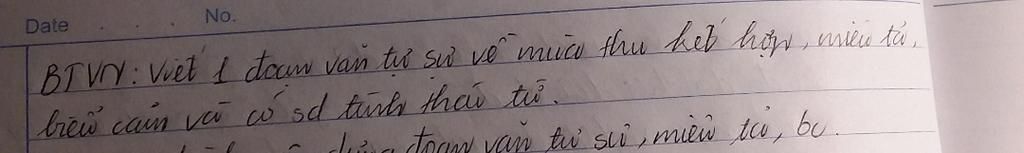 Date . . . . No.
BTVN: Viết 1 đoạn văn tự sự về mùa thu kết hợp, miêu tả,
biểu cảm và có sd tình thái từ.
đoạn văn tự sự, miêu tả, bc.